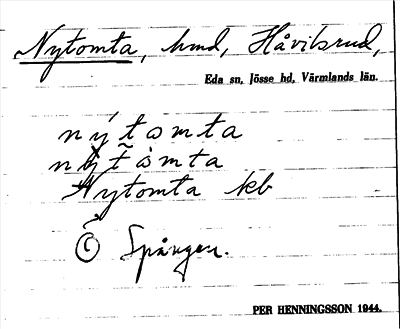 Nytomta, hmd, Håvilsrud,
Eda sn, Jösse hd, Värmlands län.
nýtomta
nỳt̃òmta
Nytomta kb
Ö Spången.
PER HENNINGSSON 1944.